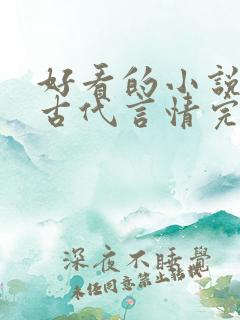 好看的小说
古代言情完
深夜不睡觉
未经同意禁止转载